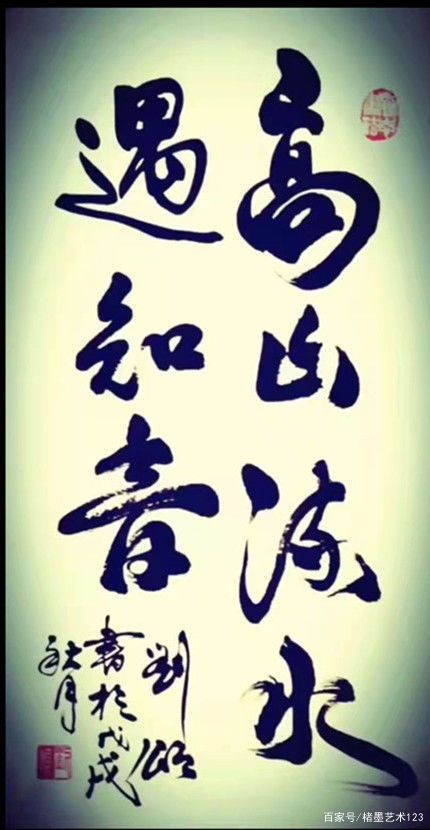 高山流水
遇知音
劉
書於戊戌
秋月
百家号/楮墨艺术123